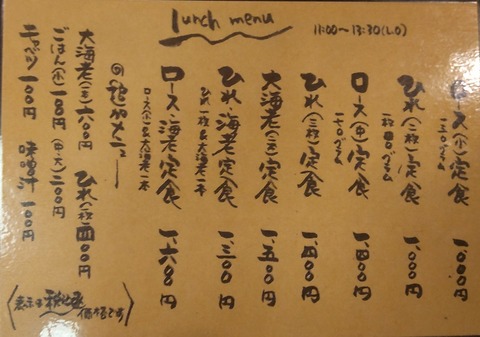 lunch menu
11:00〜13:30(L.O)
ロース(小)定食 1,000円
一二〇グラム
ひれ(二枚)定食 1,000円
一枚四〇グラム
ロース(中)定食 1,400円
一七〇グラム
ひれ(三枚)定食 1,400円
大海老(三本)定食 1,500円
ひれ・海老定食 1,300円
ひれ一枚&大海老一本
ロース・海老定食 1,600円
ロース(小)&大海老一本
◎追加メニュー
大海老(一本)六〇〇円 ひれ(一枚)四〇〇円
ごはん(小)一〇〇円 (中・大)二〇〇円
キャベツ一〇〇円 味噌汁一〇〇円
表示は税込価格です